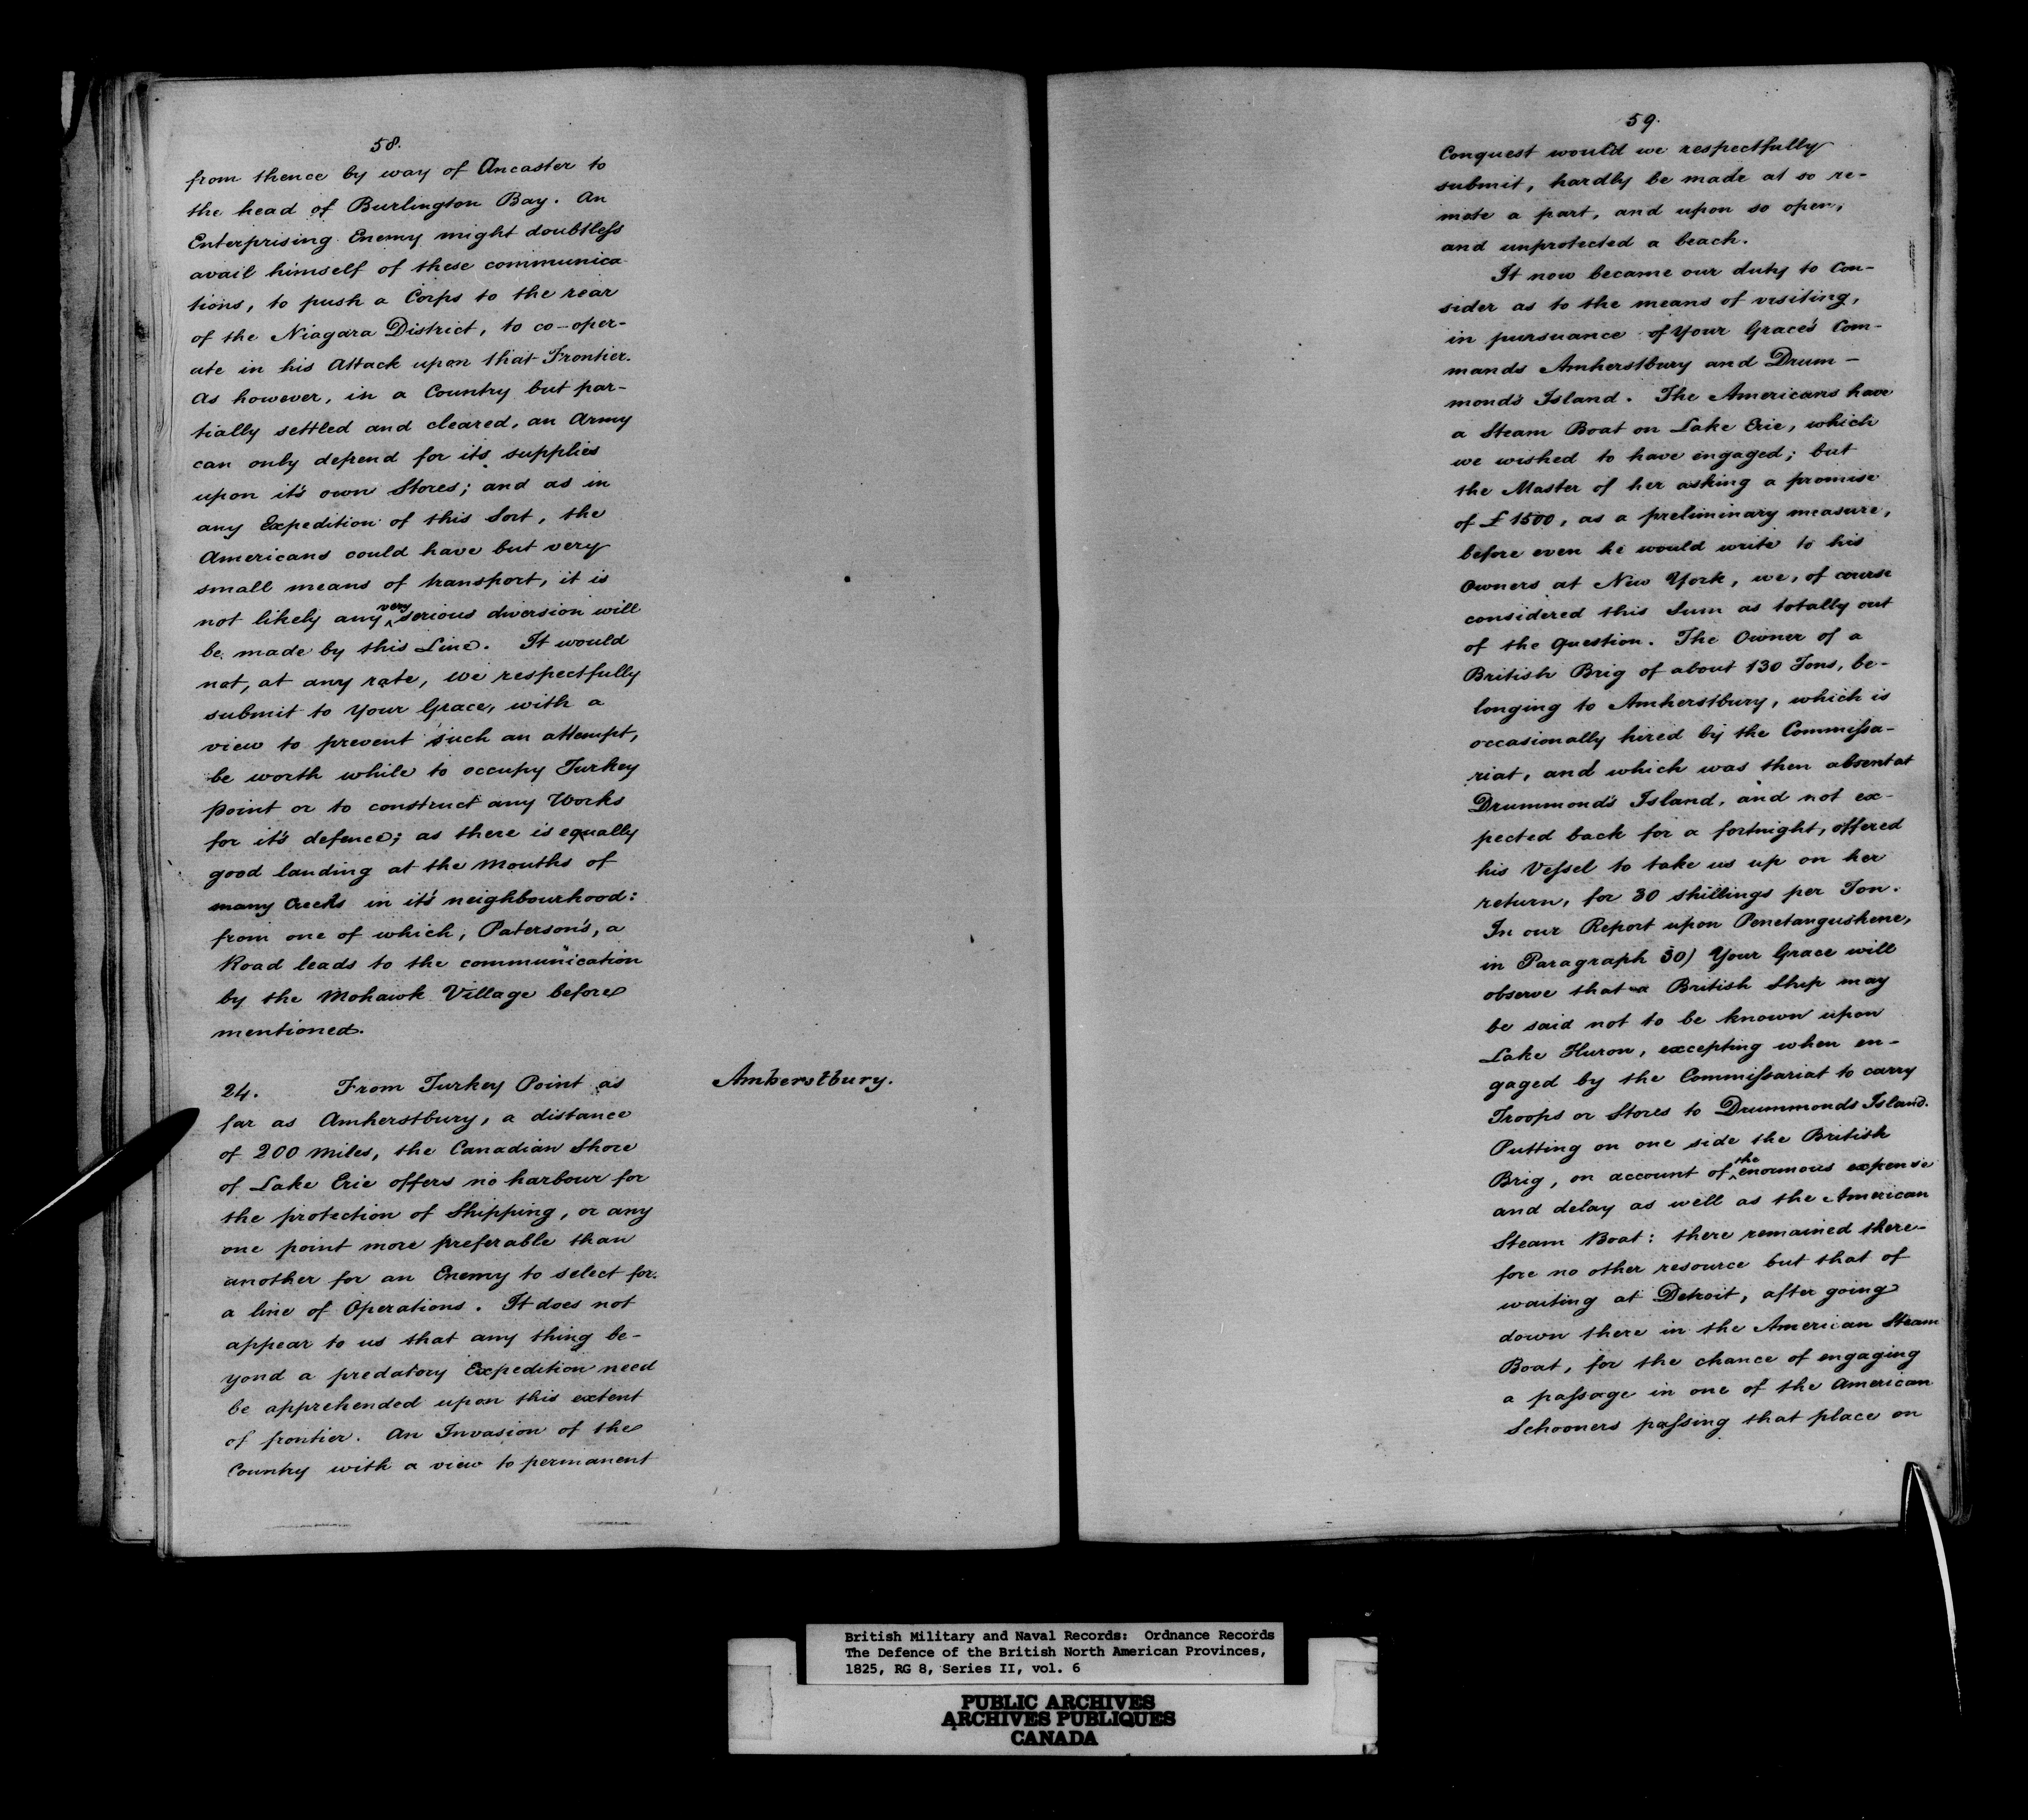 58.
from thence by way of Ancaster to
the head of Burlington Bay. An
Enterprising Enemy might doubtless
avail himself of these communica
tions, to push a Corps to the rear
of the Niagara District, to co-oper-
ate in his Attack upon that Frontier.
As however, in a Country but par-
tially settled and cleared, an Army
can only depend for its supplies
upon it's own Stores; and as in
any Expedition of this Sort, the
Americans could have but very
small means of transport, it is
not likely any very serious diversion will
be made by this Line. It would
not, at any rate, we respectfully
submit to Your Grace, with a
view to prevent such an attempt,
be worth while to occupy Turkey
Point or to construct any Works
for it's defence; as there is equally
good landing at the Mouths of
many Creeks in it's neighbourhood:
from one of which, Paterson's, a
Road leads to the communication
by the Mohawk Village before
mentioned.
24. From Turkey Point as
far as Amherstbury, a distance
of 200 Miles, the Canadian Shore
of Lake Erie offers no harbour for
the protection of Shipping, or any
one point more preferable than
another for an Enemy to select for
a line of Operations. It does not
appear to us that any thing be-
yond a predatory Expedition need
be apprehended upon this extent
of frontier. An Invasion of the
Country with a view to permanent
Amherstbury.
59.
Conquest would we respectfully
submit, hardly be made at so re-
mote a part, and upon so open,
and unprotected a beach.
It now became our duty to con-
sider as to the means of visiting,
in pursuance of Your Grace's Com-
mands Amherstbury and Drum-
mond's Island. The Americans have
a Steam Boat on Lake Erie, which
we wished to have engaged; but
the Master of her asking a promise
of £1500, as a preliminary measure,
before even he would write to his
Owners at New York, we, of course
considered this Sum as totally out
of the Question. The Owner of a
British Brig of about 130 Tons, be-
longing to Amherstbury, which is
occasionally hired by the Commissa-
riat, and which was then absent at
Drummond's Island, and not ex-
pected back for a fortnight, offered
his Vessel to take us up on her
return, for 30 shillings per Ton.
In our Report upon Penetangushene,
in Paragraph 30) Your Grace will
observe that a British Ship may
be said not to be known upon
Lake Huron, excepting when en-
gaged by the Commissariat to carry
Troops or Stores to Drummonds Island.
Putting on one side the British
Brig, on account of the enormous expense
and delay as well as the American
Steam Boat: there remained there-
fore no other resource but that of
waiting at Detroit, after going
down there in the American Steam
Boat, for the chance of engaging
a passage in one of the American
Schooners passing that place on
British Military and Naval Records: Ordnance Records
The Defence of the British North American Provinces,
1825, RG 8, Series II, vol. 6
PUBLIC ARCHIVES
ARCHIVES PUBLIQUES
CANADA